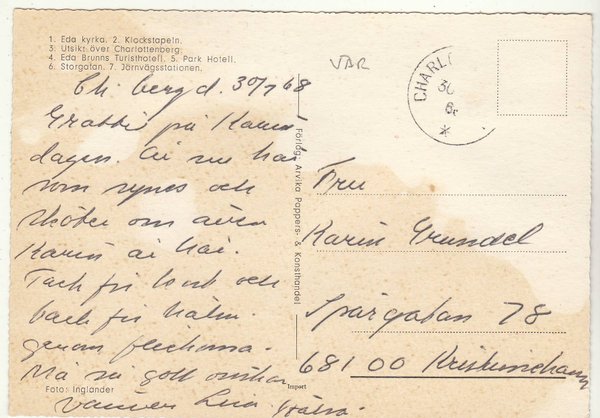 1. Eda kyrka. 2. Klockstapeln.
3. Utsikt över Charlottenberg.
4. Eda Brunns Turisthotell. 5. Park Hotell.
6. Storgatan. 7. Järnvägsstationen.
VÄR
CHARL
30
6
*
Ch. berg d. 30/7 68
Grattis på Karin
dagen. Vi är här
som synes och
sköter om även
Karin är här.
Tack för kort och
tack för hälsn.
genom flickorna.
Må så gott önskar
vännen
Förlag: Arvika Pappers- & Konsthandel
Fru
Karin Grundel
Spårgatan 78
681 00 Kristinehamn
Foto: Inglander
Import